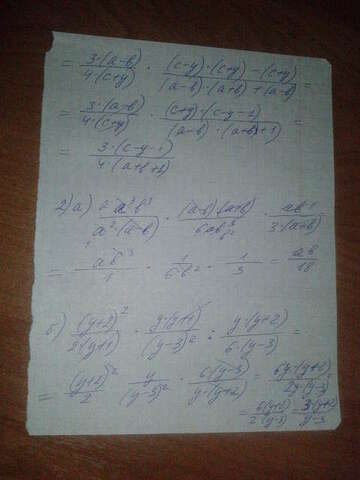 = 3·(a-b) / 4·(c+y) · (c-y)·(c+y)-(c+y) / (a-b)·(a+b)+(a-b) =
= 3·(a-b) / 4·(c+y) · (c+y)·(c-y-1) / (a-b)·(a+b+1) =
= 3·(c-y-1) / 4·(a+b+1)
2) a) a³b³ / a²·(a-b) · (a-b)·(a+b) / 6ab³ · / 3·(a+b)
= / 1 · 1 / 6·b² · 1 / 3 = ab / 18
б) (y+2)² / 2(y+1) · y·(y+1) / (y-3)² : y·(y+2) / 6·(y-3) =
= (y+2)² / 2 · y / (y-3)² · 6·(y-3) / y·(y+2) = 6y·(y+2) / 2y·(y-3)
= 6(y+2) / 2(y-3) = 3·(y+2) / y-3